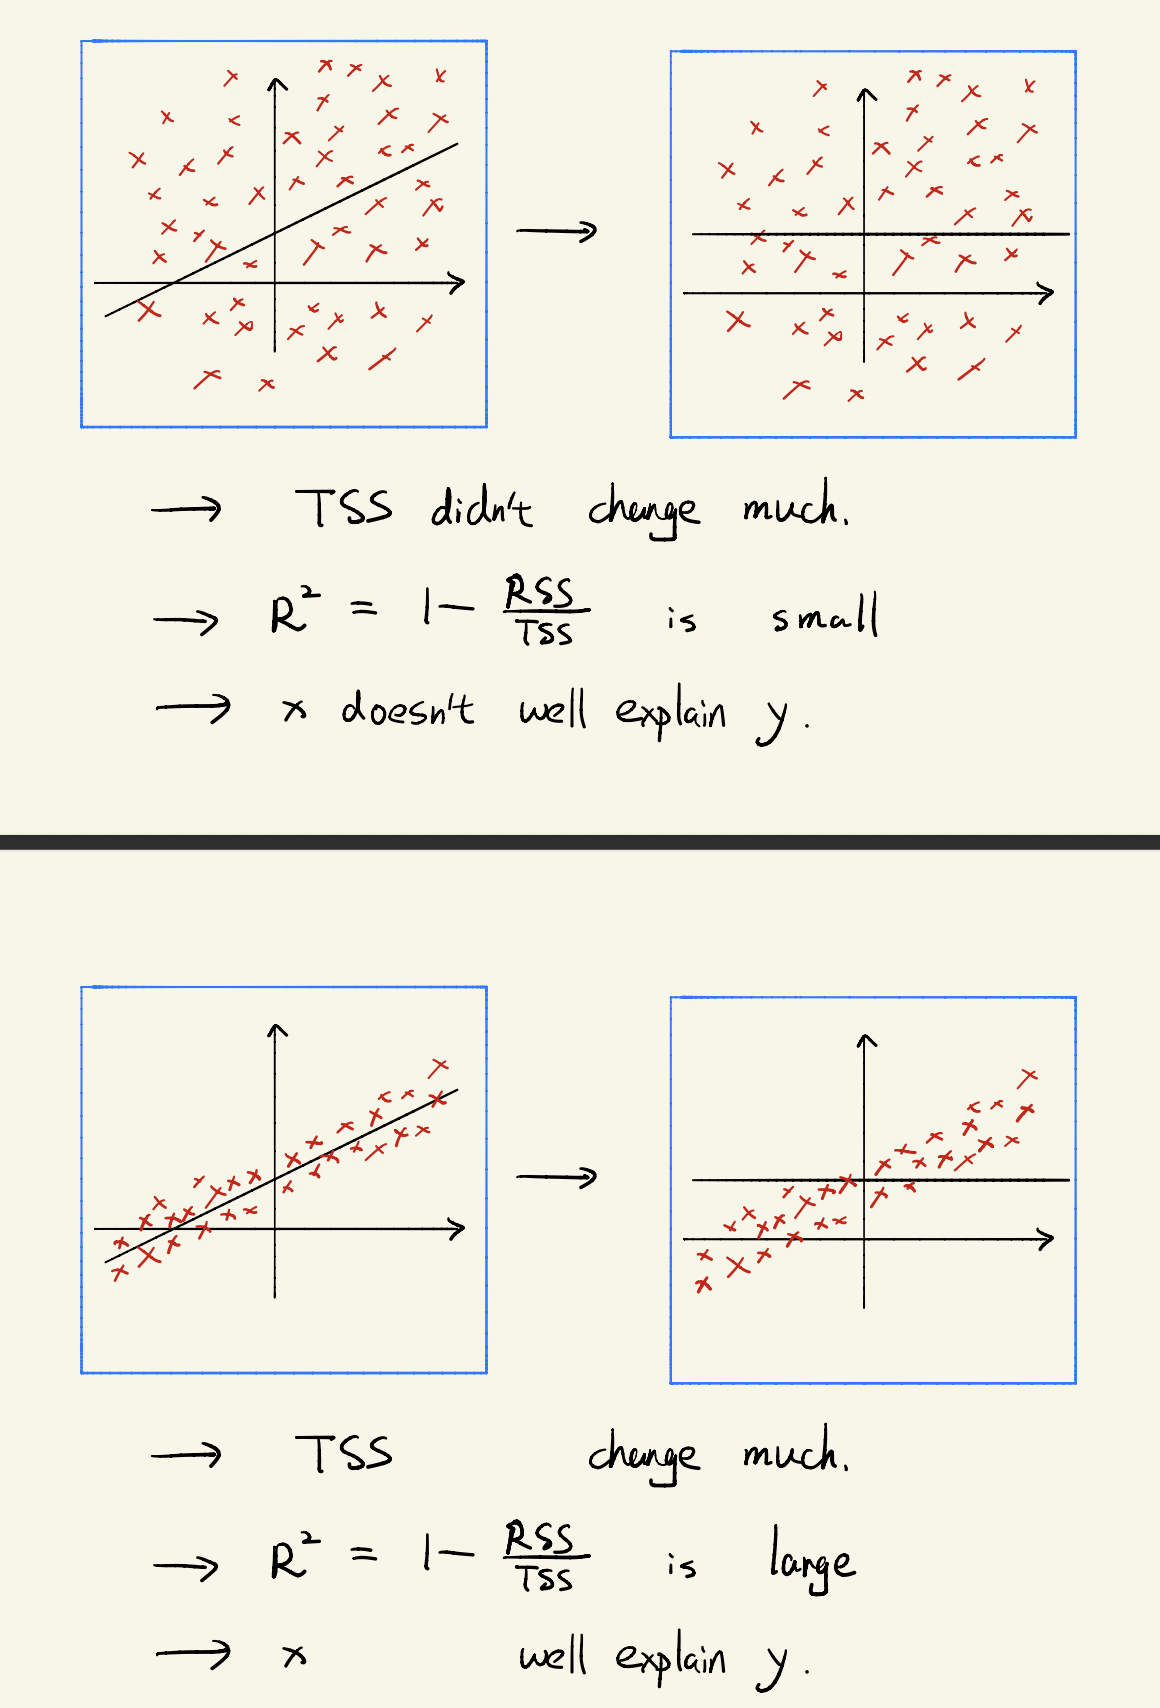 → TSS didn't change much.
→ R² = 1 − RSS/TSS is small
→ x doesn't well explain y.
→ TSS change much.
→ R² = 1 − RSS/TSS is large
→ x well explain y.